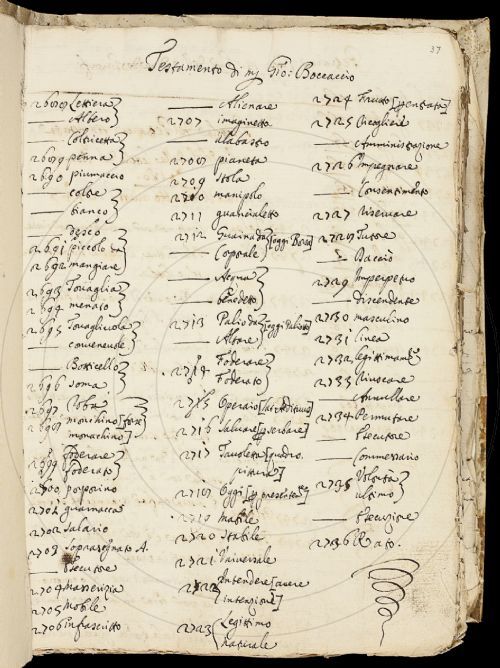 37
Testamento di m Gio: Boccaccio
2688 Lettiera
— Albero
— Coltricetta
2689 penna
2690 piumaccio
— coltre
— bianco
— desco
2691 piccolo da
2692 mangiare
2693 Tovaglia
2694 menato
2695 Tovagliuola
convenevole
— Botticello
2696 soma
2697 Roba
2698 monchino [forse
monachino]
2699 foderare
foderato
2700 porporino
2701 guarnacca
2702 salario
2703 soprassegnato A.
— Esecutore
2704 Masserizia
2705 Mobile
2706 infrascritto
— Alienare
2707 imaginetta
— alabastro
2708 pianeta
2709 stola
2710 manipolo
2711 guancialetto
2712 Guaina da [oggi Borsa
— Corporale
— Acqua
— benedetta
2713 Palio da [oggi Paliotto
— Altare
2714 Foderare
Foderato
2715 Operaio
2716 salvare [p serbare]
2717 Tavoletta [quadro.
pittura]
2718 Oggi
2719 Mobile
2720 Stabile
2721 Universale
2722 Intendere [avere
intenzione]
2723 Legittimo
naturale
2724 Frutto [p entrata]
2725 Ricogliere
— Amministrazione
2726 Impegnare
— Consentimento
2727 Riservare
2728 Tutore
— Boccio
2729 Imperpetuo
— Discendente
2730 masculino
2731 linea
2732 legittimamte
2733 Rinocare
— Annullare
2734 Permutare
— Esecutore
— Commessario
2735 Volontà
ultima
— Esecuzione
2736 Rato.